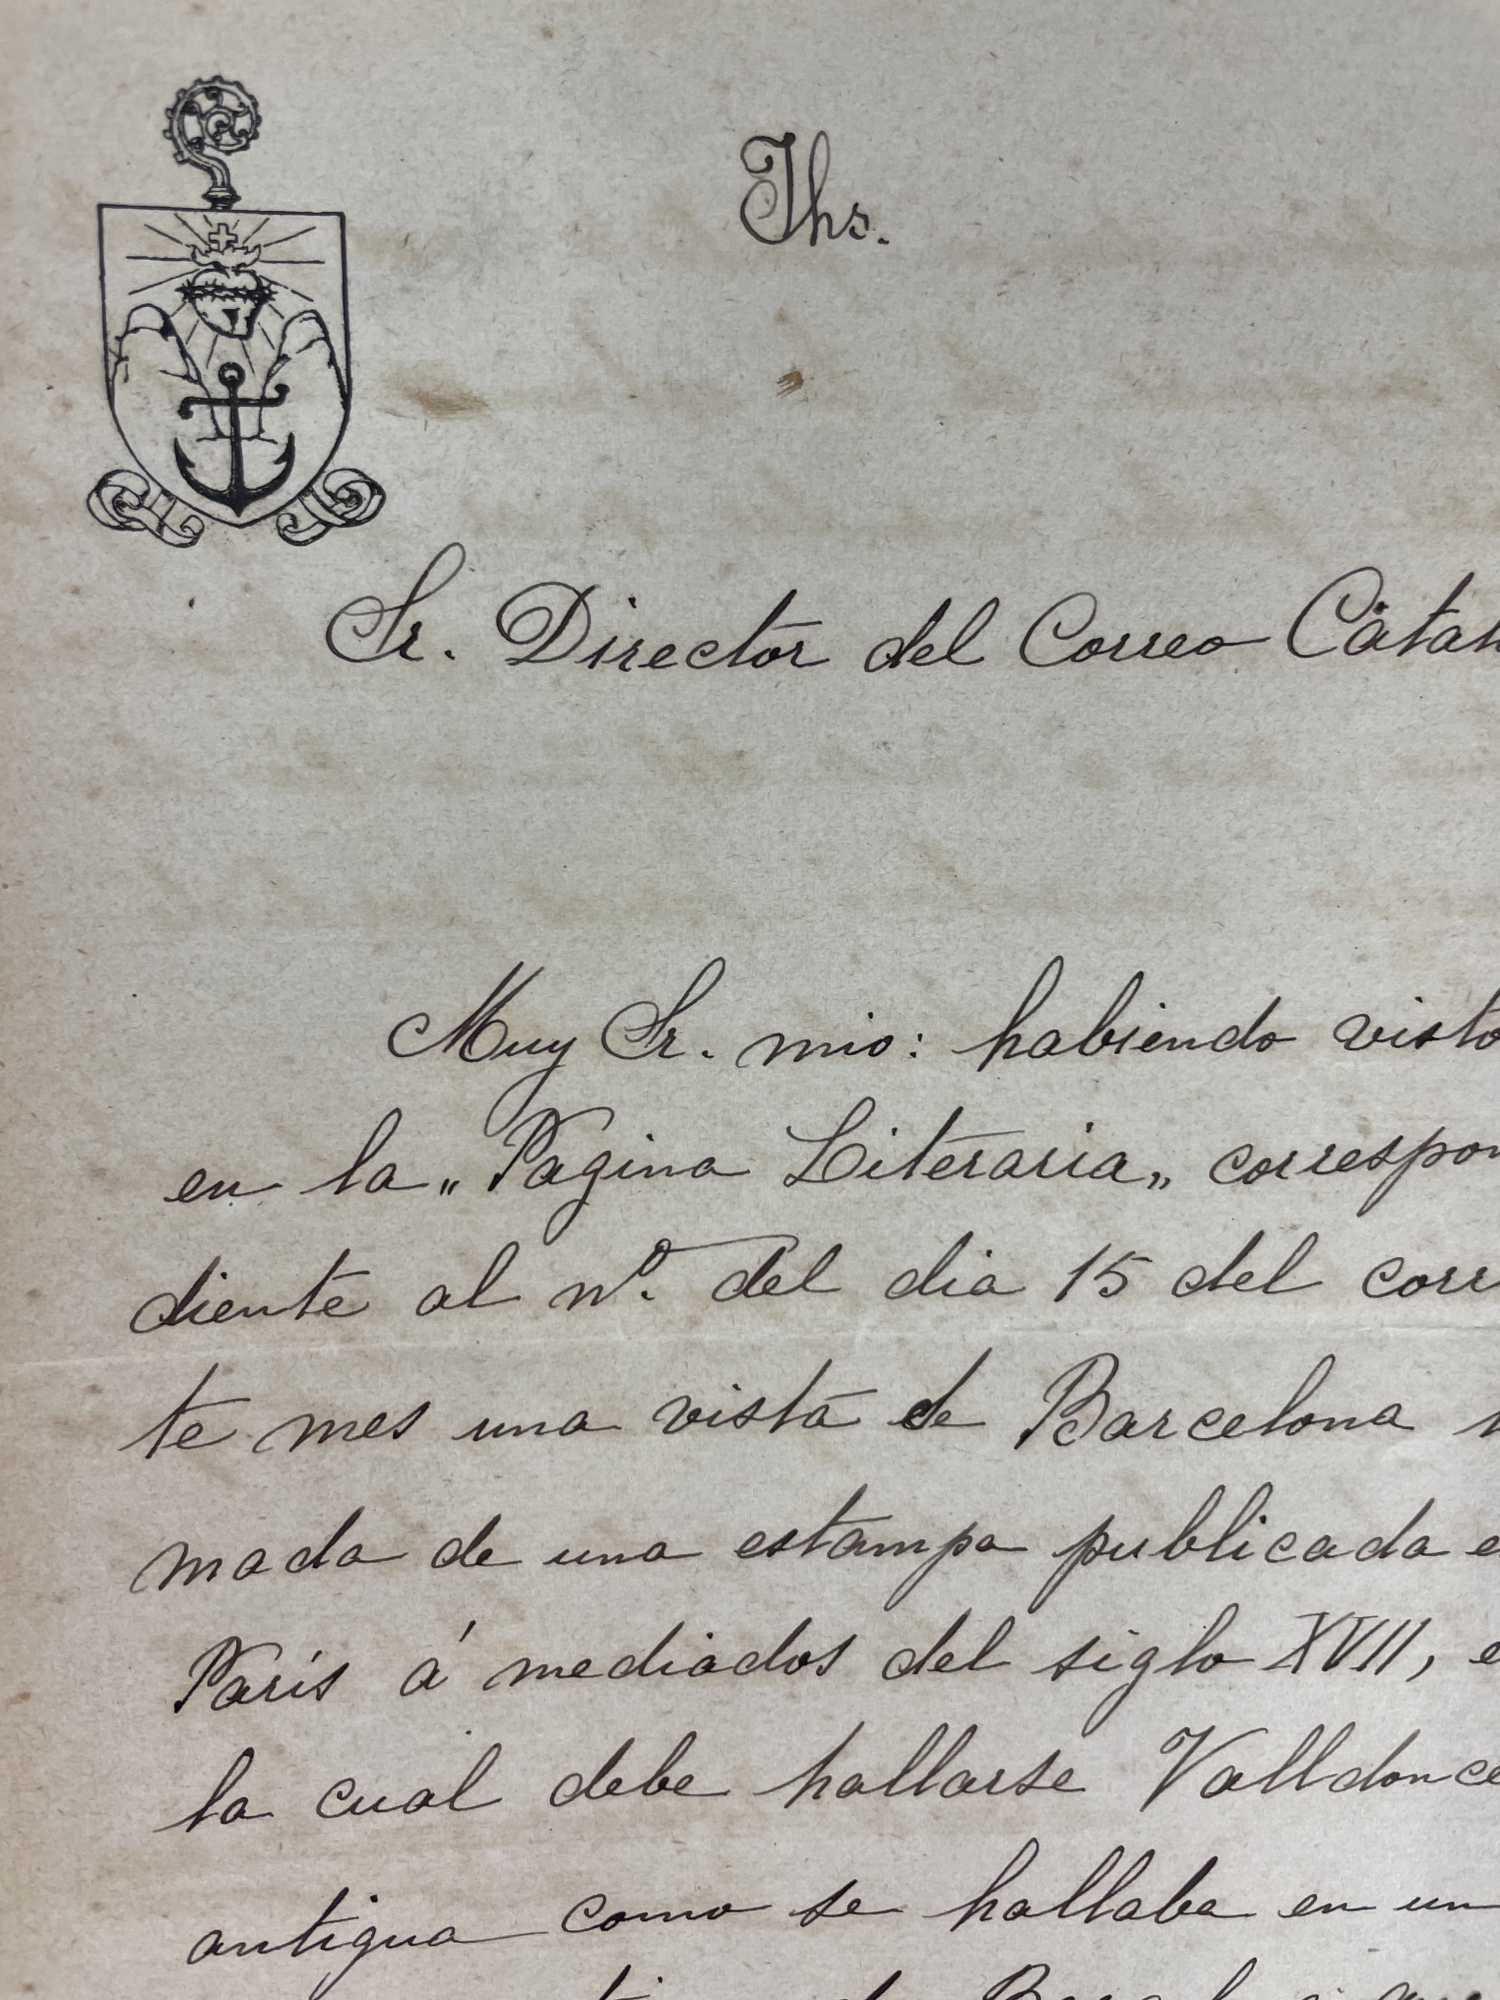 Ihs.
Sr. Director del Correo Catal
Muy Sr. mio: habiendo visto
en la „Pagina Literaria„ correspon
diente al nº. del dia 15 del corr
te mes una vista de Barcelona
mada de una estampa publicada e
París á mediados del siglo XVII, e
la cual debe hallarse Valldonce
antigua como se hallaba en un